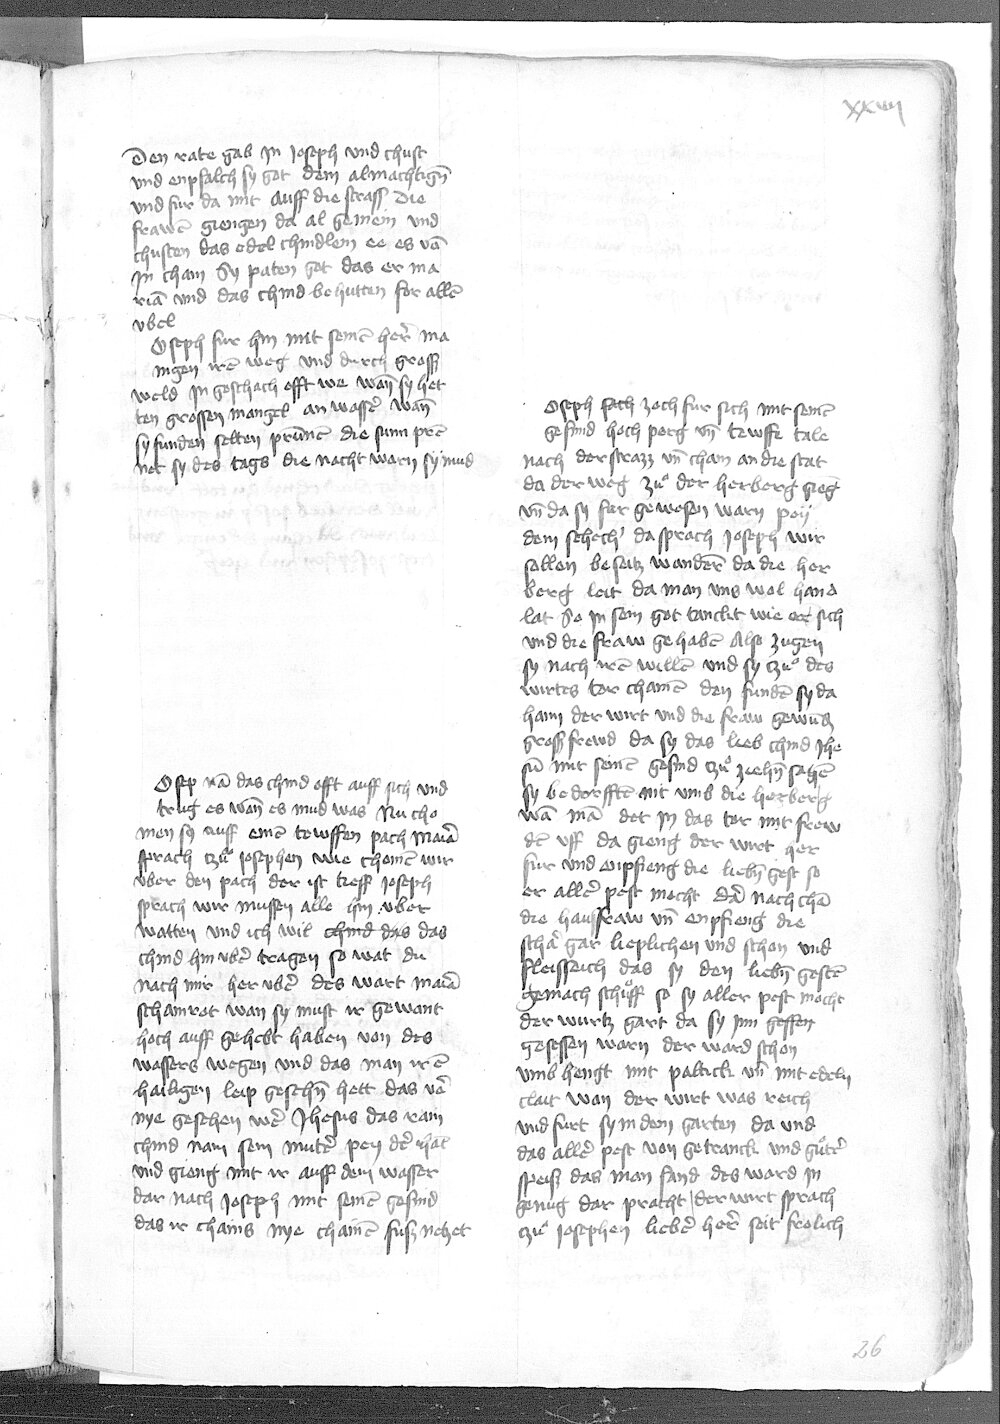 xxvij
Den rate gab in Joseph vnd chust
vnd enpfalch sy got dem almachtigñ
vnd fur da mit auff die strass Die
frawē giengen da al gemein vnd
chusten das edel chindlein ee es vō
in cham Sy paten got das er ma
riā vnd das chind behutten for allē
vbel
Oseph fur hin mit seinē her̄ ma
ingen irē weg vnd durch gross
weld in geschach offt we wan̄ sy het
ten grossen mangel an wasse᷑ wan̄
sy funden selten prun̄e die sunn pre᷑
net sy des tags die nacht warn sy mud
Osep nā das chind offt auff sich vnd
trug es wan̄ es mud was Nu cho
men sy auff einē tewffen pach Maiā
sprach tzů Josephen wie chomē wir
vber den pach der ist tieff Joseph
sprach wir mussen alle hin vber
watten vnd ich wil chind das das
chind hin vbe᷑ tragen so wat du
nach mir her vbe᷑ des wart maiā
schamrot wan sy must ir gewant
hoch auff gehebt haben von des
wassers wegen vnd das man irē
hailigen leip geschn̄ hett das vē
nye gesehen we᷑ Jhesus das rain
chind nam sein mute᷑ pey de᷑ hāt
vnd gieng mit ir auff dem wasser
dar nach Joseph mit seinē gesind
das ir chains nye chainē fusz neczet
Oseph sach zoch fur sich mit seinē
gesind hoch perg vn̄ tewffe tale
nach der strazz vn̄ cham an die stat
da der weg zů der herberg gieg
vn̄ da sy for gewesen warn pey
dem schech᷑ da sprach Joseph wir
sollen beseitz wandern̄ da die her
berg leit da man vns wol hand
lat So in sein got tanckt wie er sich
vnd die fraw gehabē Also zugen
sy nach irē willē vnd sy tzů des
wirtes tor chamē den fundē sy da
haim der wirt vnd die fraw gewūn
gross frewd da sy das lieb chind Jhe
sū mit seinē gesind tzů ziehn̄ sahē
sy bedorfftē nit vmb die herberg
wā mā det in das tor mit frew
dē vff da gieng der wirt her
fur vnd enpfieng die liebn̄ gest so
er alle᷑ pest mocht dā nach chā
die hausfraw vn̄ enpfieng die
schā gar lieplichen vnd schon vnd
fleissleich das sy den liebn̄ gestē
gemach schůff so sy aller pest mocht
der wurtz gart da sy jnn geffen
gesessen warn der ward schon
vmb hengt mit paltick vn̄ mit edeln
clait wan der wirt was reich
vnd furt sy in dem garten da vnd
das alle᷑ pest von getranck vnd gute᷑
speisz das man fand des ward in
genug dar pracht der wirt sprach
tzů Josephen liebe᷑ her̄ seit frolich
26